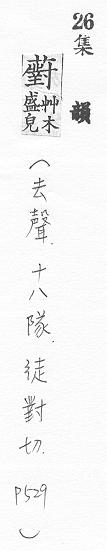 26集韻
薱艸木盛皃
(去聲.十八隊.徒對切.P529)